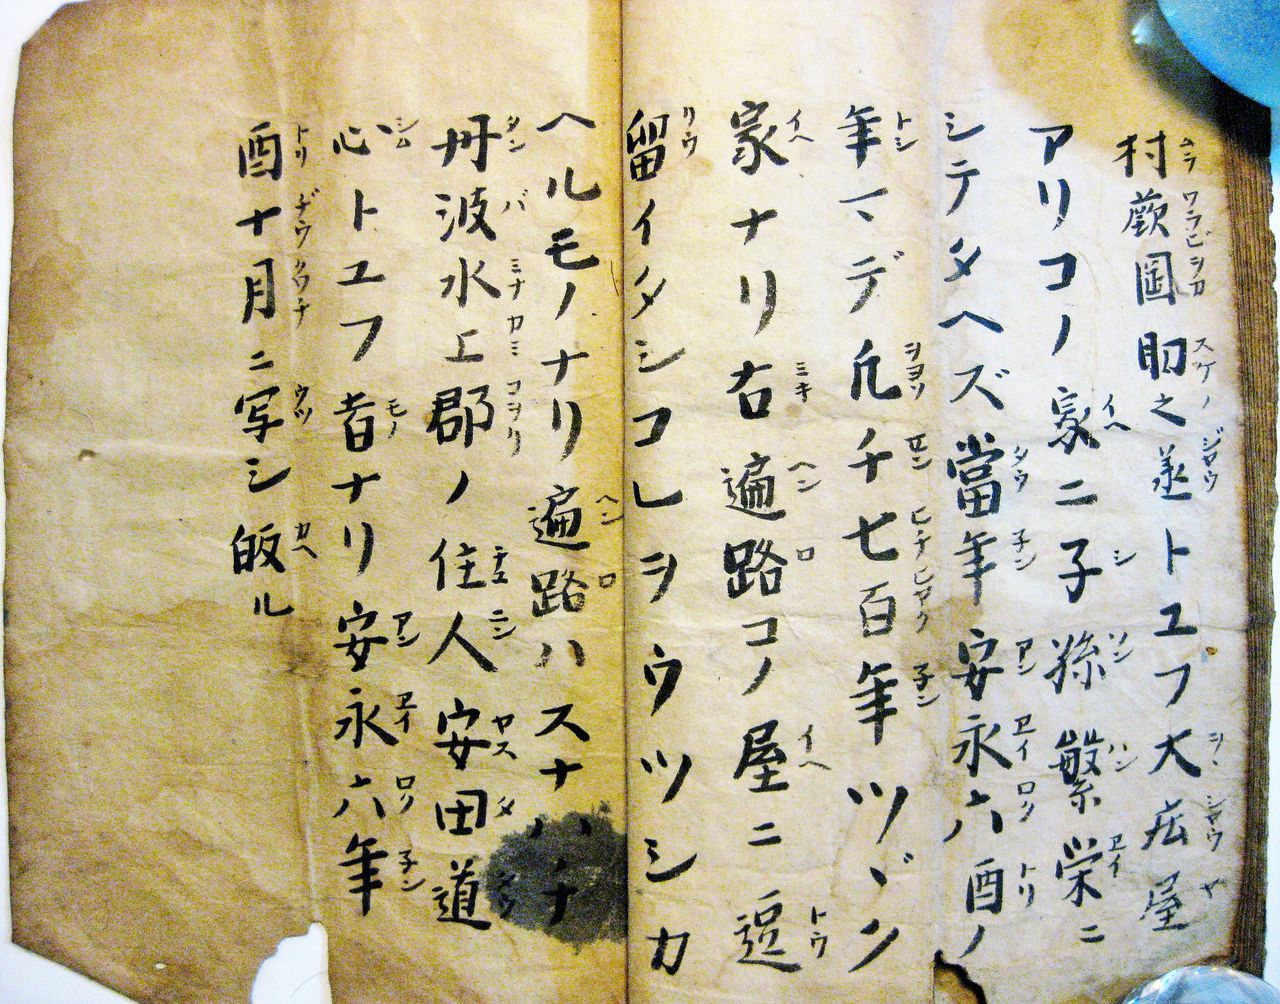 村蕨岡助之丞トユフ大庄屋
アリコノ家ニ子孫繁栄ニ
シテタヘズ當年安永六酉ノ
年マデ凡千七百年ツヾン
家ナリ右遍路コノ屋ニ逗
留イタシコレヲウツシカ
ヘルモノナリ遍路ハスナハチ
丹波水上郡ノ住人安田道
心トユフ者ナリ安永六年
酉十月ニ写シ皈ル